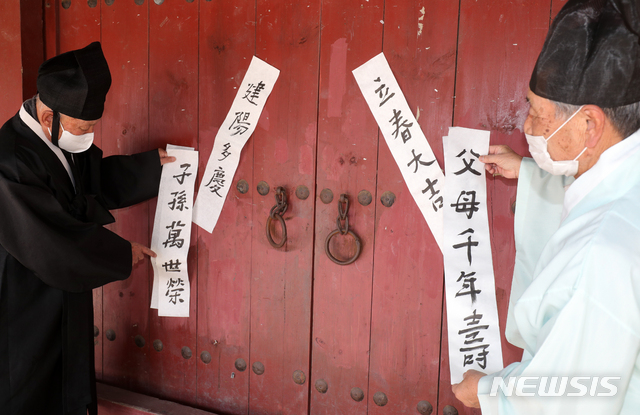 立春大吉
建陽多慶
父母千年壽
子孫萬世榮
NEWSIS